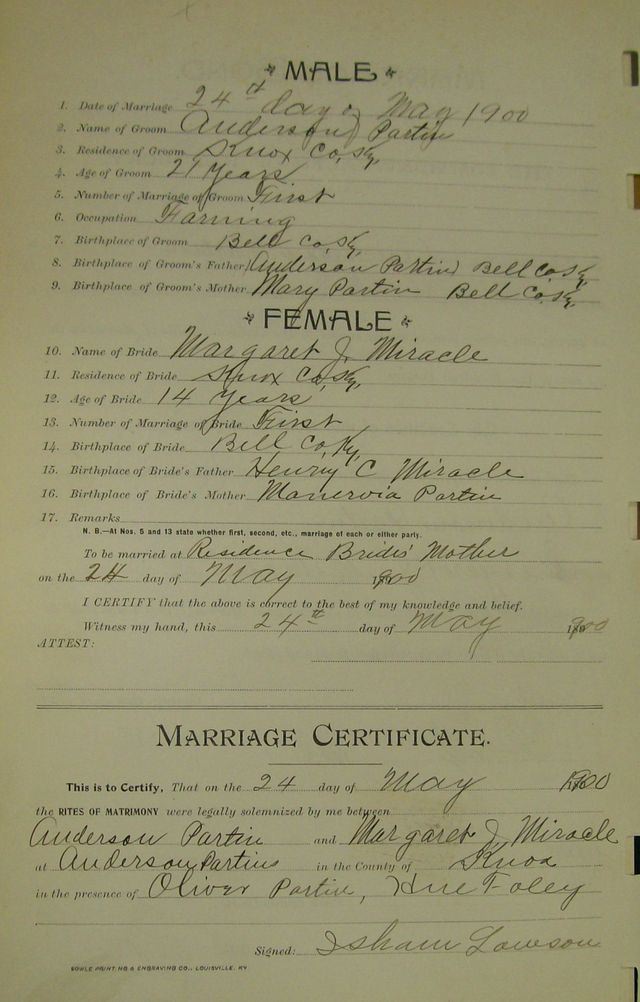 MALE
1. Date of Marriage 24th day of May 1900
2. Name of Groom Anderson Partin
3. Residence of Groom Knox Co, Ky,
4. Age of Groom 21 Years
5. Number of Marriage of Groom First
6. Occupation Farming
7. Birthplace of Groom Bell Co, Ky,
8. Birthplace of Groom's Father Anderson Partin Bell Co. Ky
9. Birthplace of Groom's Mother Mary Partin Bell Co. Ky,
FEMALE
10. Name of Bride Margaret J. Miracle
11. Residence of Bride Knox Co, Ky,
12. Age of Bride 14 Years
13. Number of Marriage of Bride First
14. Birthplace of Bride Bell Co, Ky,
15. Birthplace of Bride's Father Henry C Miracle
16. Birthplace of Bride's Mother Manervia Partin
17. Remarks
N. B.—At Nos. 5 and 13 state whether first, second, etc., marriage of each or either party.
To be married at Residence Brides' Mother
on the 24 day of May 1900
I CERTIFY that the above is correct to the best of my knowledge and belief.
Witness my hand, this 24th day of May 1900
ATTEST:
MARRIAGE CERTIFICATE.
This is to Certify, That on the 24 day of May 1900
the RITES OF MATRIMONY were legally solemnized by me between
Anderson Partin and Margaret J Miracle
at Anderson Partins in the County of Knox
in the presence of Oliver Partin, Foley
Signed: Isham Lawson
BOWLE PRINTING & ENGRAVING CO., LOUISVILLE, KY